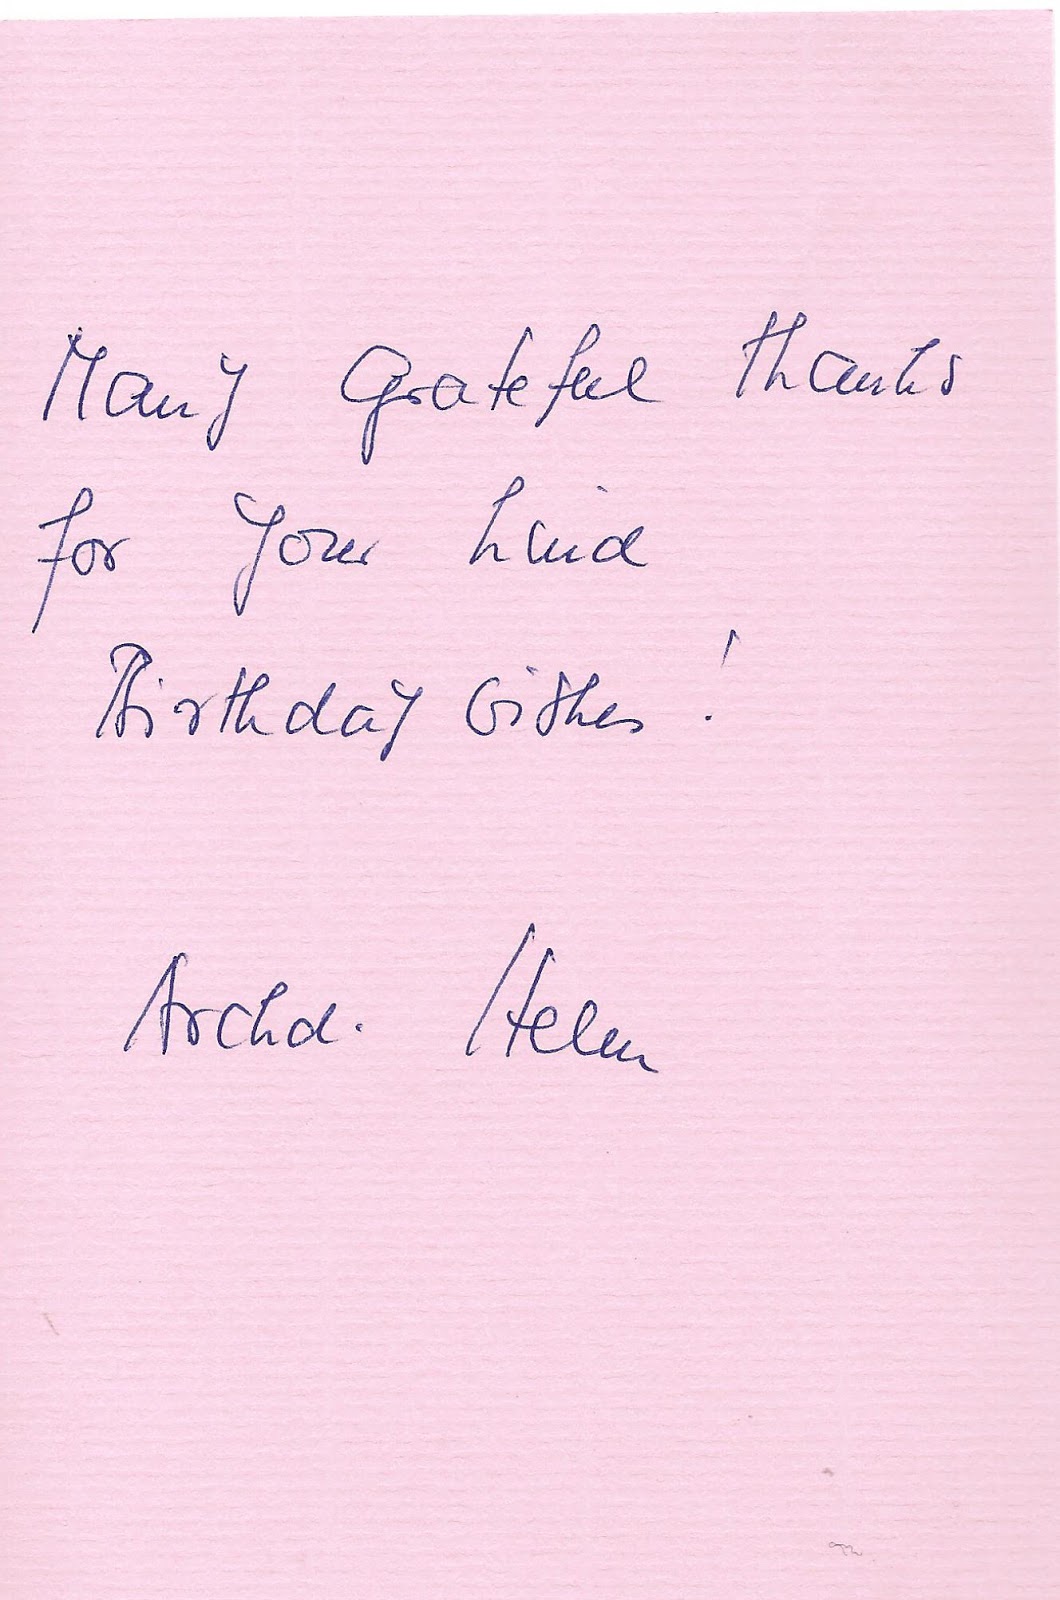 Many grateful thanks
for your kind
Birthday wishes !
Archd. Helen